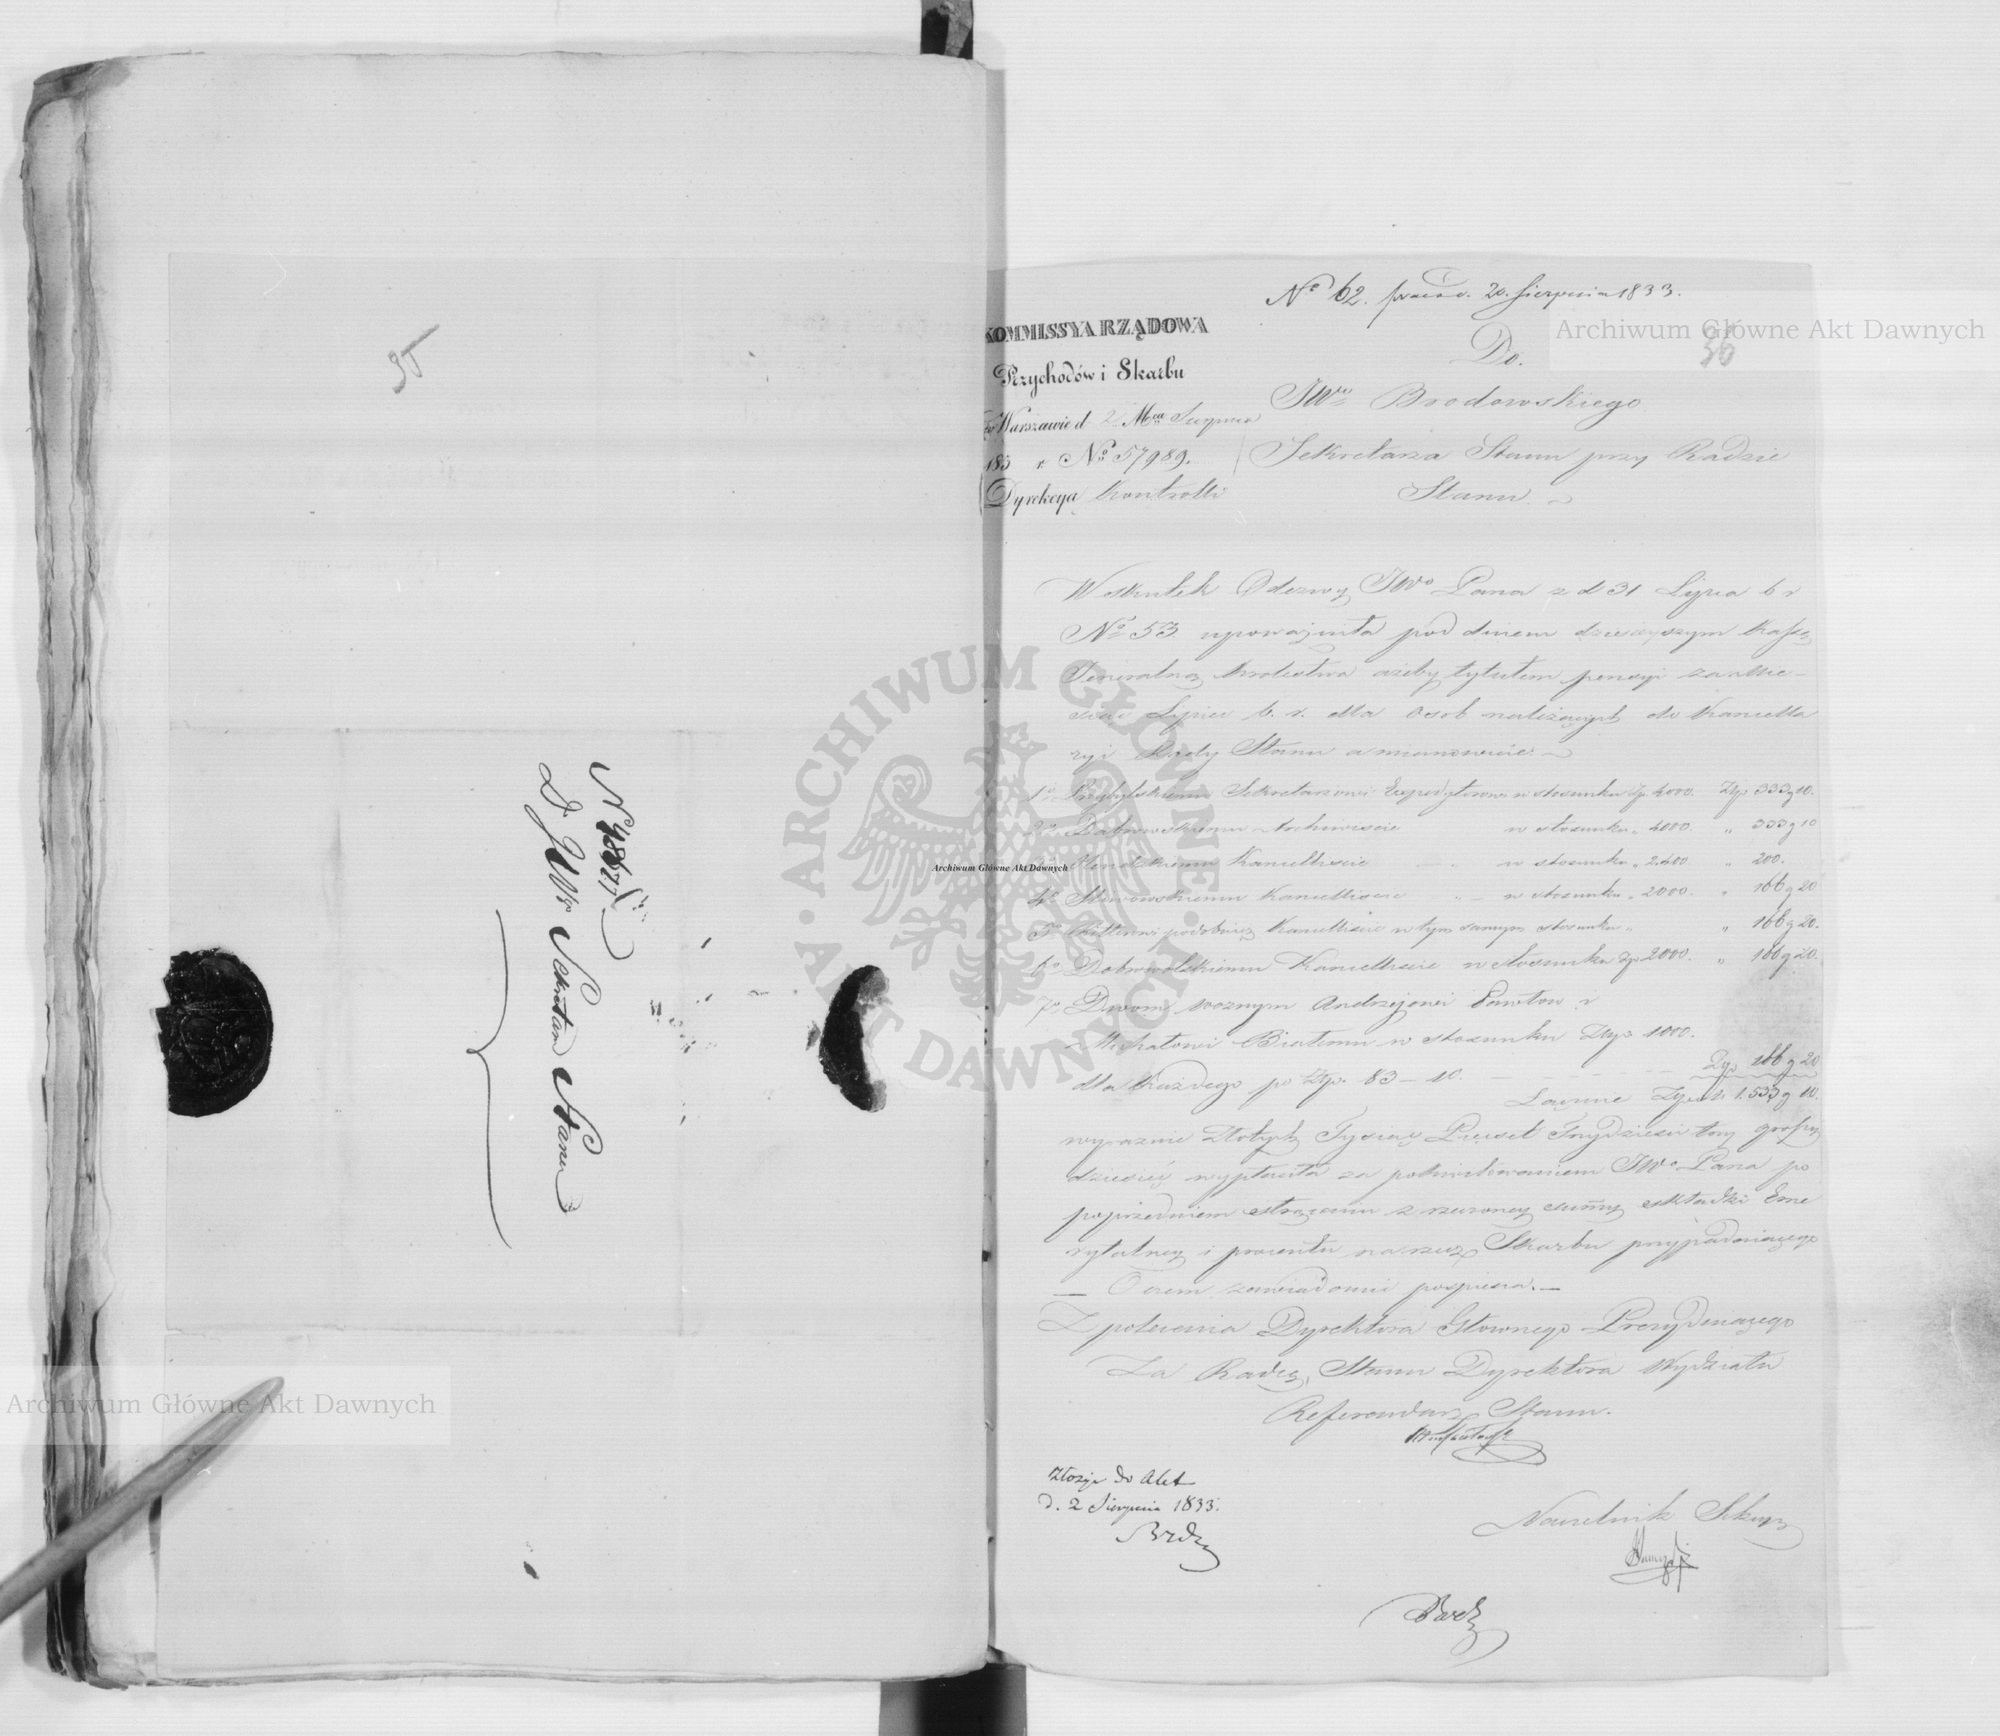 35
N 48677
D JWo Sekretarza Stanu
No 62. 20. Sierpnia 1833.
36
KOMMISSYA RZĄDOWA
Przychodów i Skarbu
w Warszawie d 2 Mca Sierpnia
183 r. No 57989.
Dyrekcya Kontrolli
Do.
JWgo Brodowskiego
Sekretarza Stanu przy Radzie
Stanu.
W skutek Odezwy JWo Pana z d 31 Lipca b r
No 53 upoważniła pod dniem dzisiejszym Kassę
Generalną Królestwa ażeby tytułem pensyi za Mie-
siąc Lipiec b. r. dla Osob należących do Kancella
ryi Rady Stanu a mianowicie.
1o Przybylskiemu Sekretarzowi Expedytorowi w stosunku Zp. 4000. Złp 333 g 10.
2o Dąbrowskiemu Archiwiście w stosunku „ 4000. „ 333 g 10
3o Kancelliście w stosunku „ 2400 „ 200.
4o Kancelliście w stosunku „ 2000. „ 166 g 20
5o podobnież Kancelliście w tym samym stosunku „ „ 166 g 20.
6o Dobrowolskiemu Kancelliście w stosunku Zp 2000. „ 166 g 20.
7o Dwom woznym Andrzejowi Pawłow i
Michałowi Białemu w stosunku Złp 1000.
dla każdego po Złp. 83 – 10. Złp 166 g 20
Łącznie Złp 1.533 g 10.
wyraźnie Złotych Tysiąc Pięcset Trzydzieści trzy groszy
dziesięć wypłaciła za pokwitowaniem JWo Pana po
poprzedniem strąceniu z rzeczoney summy składki Eme
rytalney i procentu na rzecz Skarbu przypadaiącego
— O czem zawiadomić pospiesza. —
Z polecenia Dyrektora Głownego Prezyduiącego
Za Radcę Stanu Dyrektora Wydziału
Referendarz Stanu.
Złożyć do Akt
d. 2 Sierpnia 1833.
Naczelnik Sekcyi
Archiwum Główne Akt Dawnych
Archiwum Główne Akt Dawnych
Archiwum Główne Akt Dawnych
ARCHIWUM GŁÓWNE AKT DAWNYCH